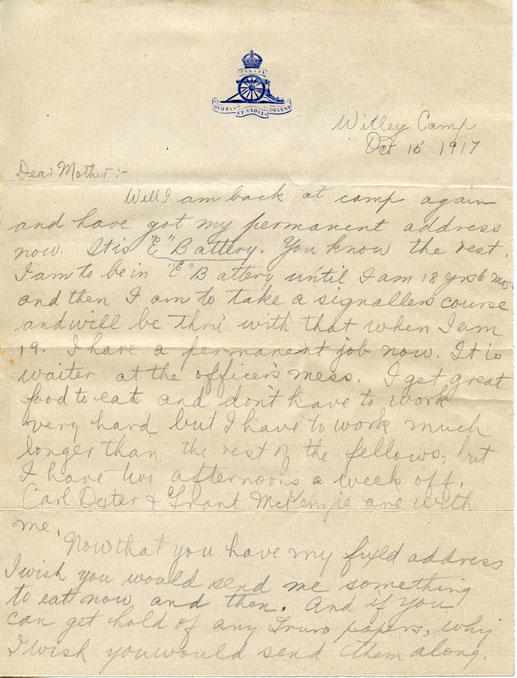 CANADA
QUO FAS ET GLORIA DUCUNT
Witley Camp
Oct 16 1917
Dear Mother:-
Well I am back at camp again
and have got my permanent address
now. It is "E" Battery. You know the rest.
I am to be in "E" Battery until I am 18 yrs 6 mos.
and then I am to take a signallers course
and will be thru with that when I am
19. I have a permanent job now. It is
waiter at the officer's mess. I get great
food to eat and don't have to work
very hard but I have to work much
longer than the rest of the fellows, but
I have two afternoons a week off.
Carl Dexter & Grant McKenzie are with
me.
Now that you have my address
I wish you would send me something
to eat now and then. And if you
can get hold of any Truro papers, why
I wish you would send them along.